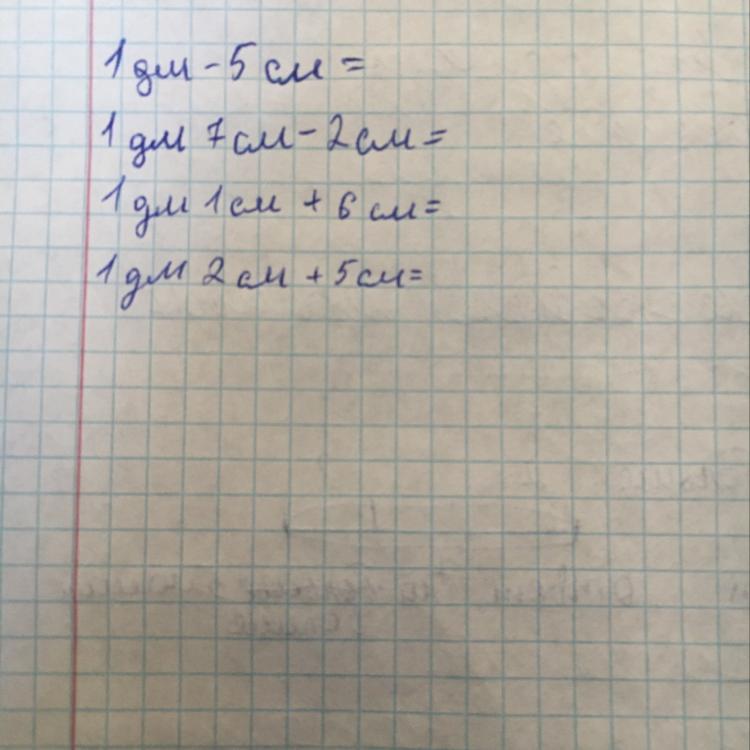 1 дм - 5 см =
1 дм 7 см - 2 см =
1 дм 1 см + 6 см =
1 дм 2 см + 5 см =